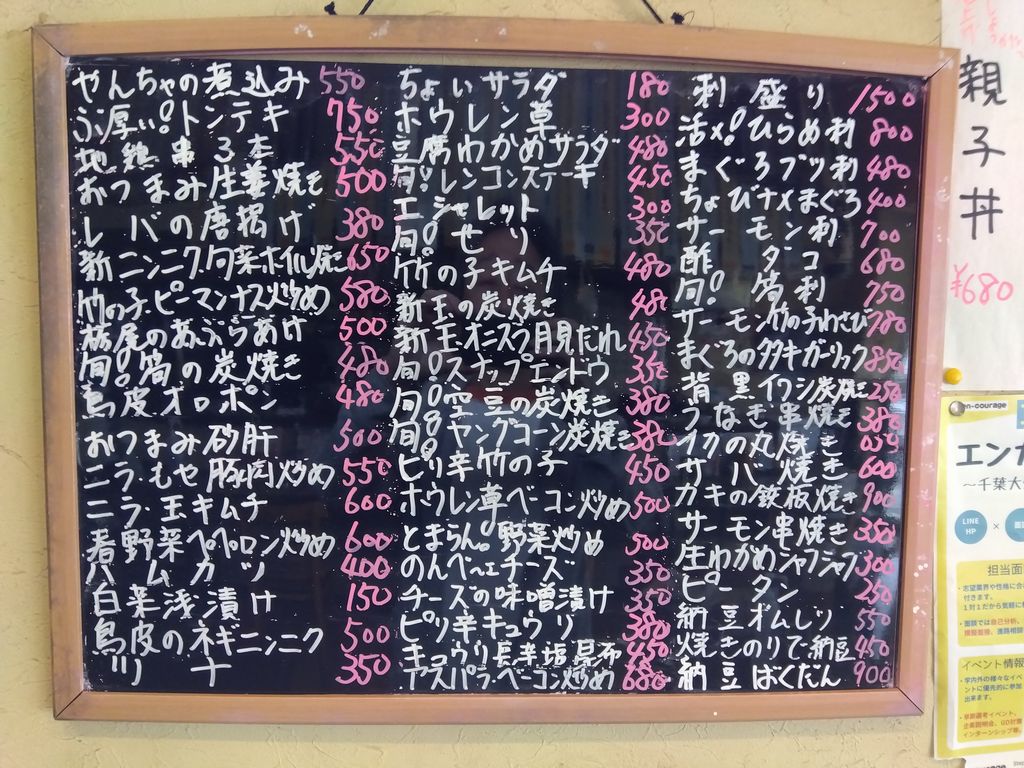 やんちゃの煮込み 550
ぶ厚い!トンテキ 750
地鶏串3本 550
おつまみ生姜焼き 500
レバの唐揚げ 380
新ニンニク.旬菜ホイル焼 650
竹の子.ピーマンナス炒め 580
栃尾のあぶらあげ 500
旬!筍の炭焼き 480
鳥皮オロポン 480
おつまみ砂肝 500
ニラ・もや豚肉炒め 550
ニラ・玉キムチ 600
春野菜ペペロン炒め 600
ハムカツ 400
白菜浅漬け 150
鳥皮のネギニンニク 500
ツナ 350
ちょいサラダ 180
ホウレン草 300
豆腐わかめサラダ 480
旬!レンコンステーキ 450
エシャレット 300
旬!せり 350
竹の子キムチ 480
新玉の炭焼き 480
新玉オニスラ月見だれ 450
旬!スナップエンドウ 350
旬!空豆の炭焼き 380
旬!ヤングコーン炭焼き 380
ピリ辛竹の子 450
ホウレン草ベーコン炒め 500
とまらん。野菜炒め 500
のんべーェチーズ 350
チーズの味噌漬け 350
ピリ辛キュウリ 380
キュウリ長芋塩昆布 450
アスパラ・ベーコン炒め 680
刺盛り 1500
活〆!ひらめ刺 800
まぐろブツ刺 480
ちょびナメまぐろ 400
サーモン刺 700
酢ダコ 680
旬! 刺 750
サーモン竹の子わさび 780
まぐろのタタキガーリック 850
背黒イワシ炭焼 250
うなぎ串焼き 380
イカの丸焼き 650
サバ焼き 600
カキの鉄板焼き 900
サーモン串焼き 350
生わかめシャブシャブ 300
ピータン 250
納豆オムレツ 550
焼きのりで納豆 450
納豆ばくだん 900
親子丼
¥680
en-courage
エンカ
～千葉大
LINE
HP
×
担当面
・志望業界や性格に合
付きます。
1対1だから気軽に
・面談では自己分析、
模擬面接、進路相談
イベント情報
・学内外の様々なイベ
ントに優先的に参加
出来ます。
・早期選考イベント、
企業説明会、GD対策
インターンシップ等。